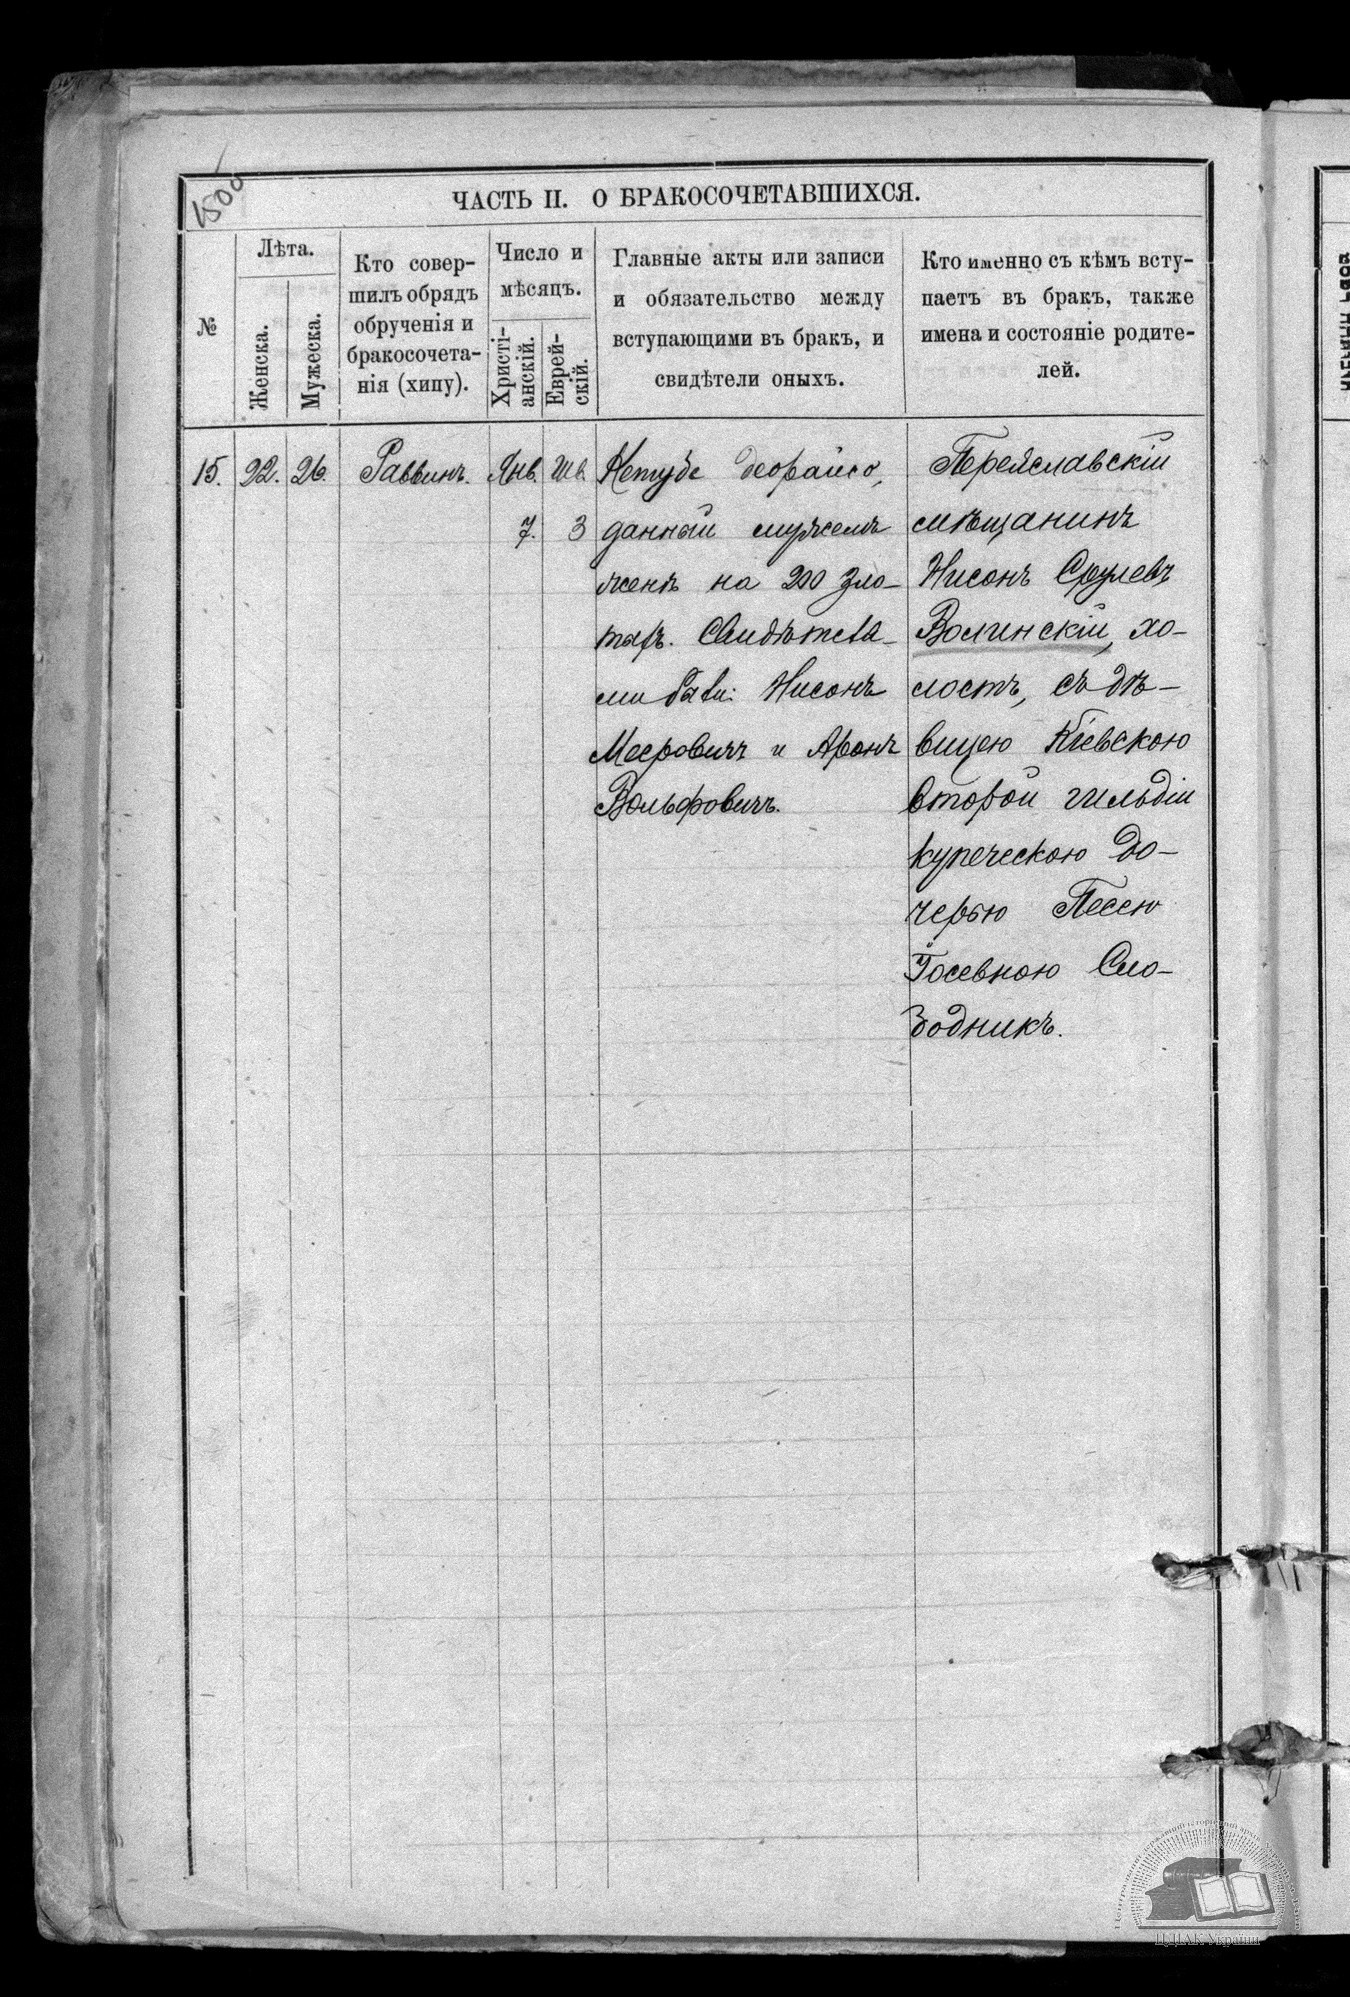 1500
ЧАСТЬ II. О БРАКОСОЧЕТАВШИХСЯ.
№
Лѣта.
Женска.
Мужеска.
Кто совер-
шилъ обрядъ
обрученія и
бракосочета-
нія (хипу).
Число и
мѣсяцъ.
Христі-
анскій.
Еврей-
скій.
Главные акты или записи
и обязательство между
вступающими въ бракъ, и
свидѣтели оныхъ.
Кто именно съ кѣмъ всту-
паетъ въ бракъ, также
имена и состояніе родите-
лей.
15.
22.
26.
Раввинъ.
Янв.
7.
Шв.
3
Кетубе деорайсо,
данный мужемъ
женѣ на 200 зло-
тыхъ. Свидѣтеля-
ми были: Нисонъ
Меровичъ и Аронъ
Вольфовичъ.
Переяславскій
мѣщанинъ
Нисонъ Срулевъ
Волинскій, хо-
лостъ, съ дѣ-
вицею Кіевскою
второй гильдіи
купеческою до-
черью Песею
Іосевною Сло-
бодникъ.
ЦДІАК України